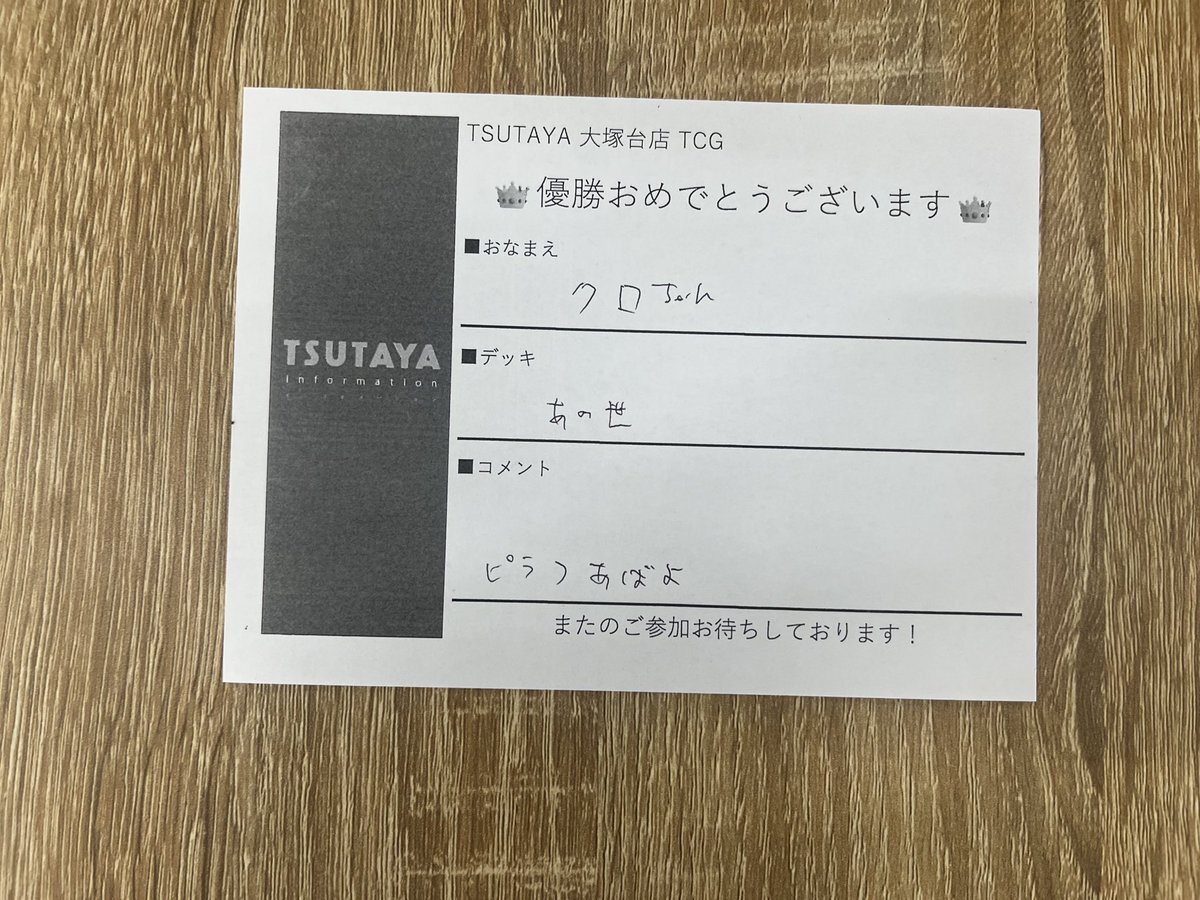 TSUTAYA 大塚台店 TCG
優勝おめでとうございます
■おなまえ
クロちゃん
■デッキ
あの世
■コメント
ピラフあばよ
またのご参加お待ちしております!
TSUTAYA
information